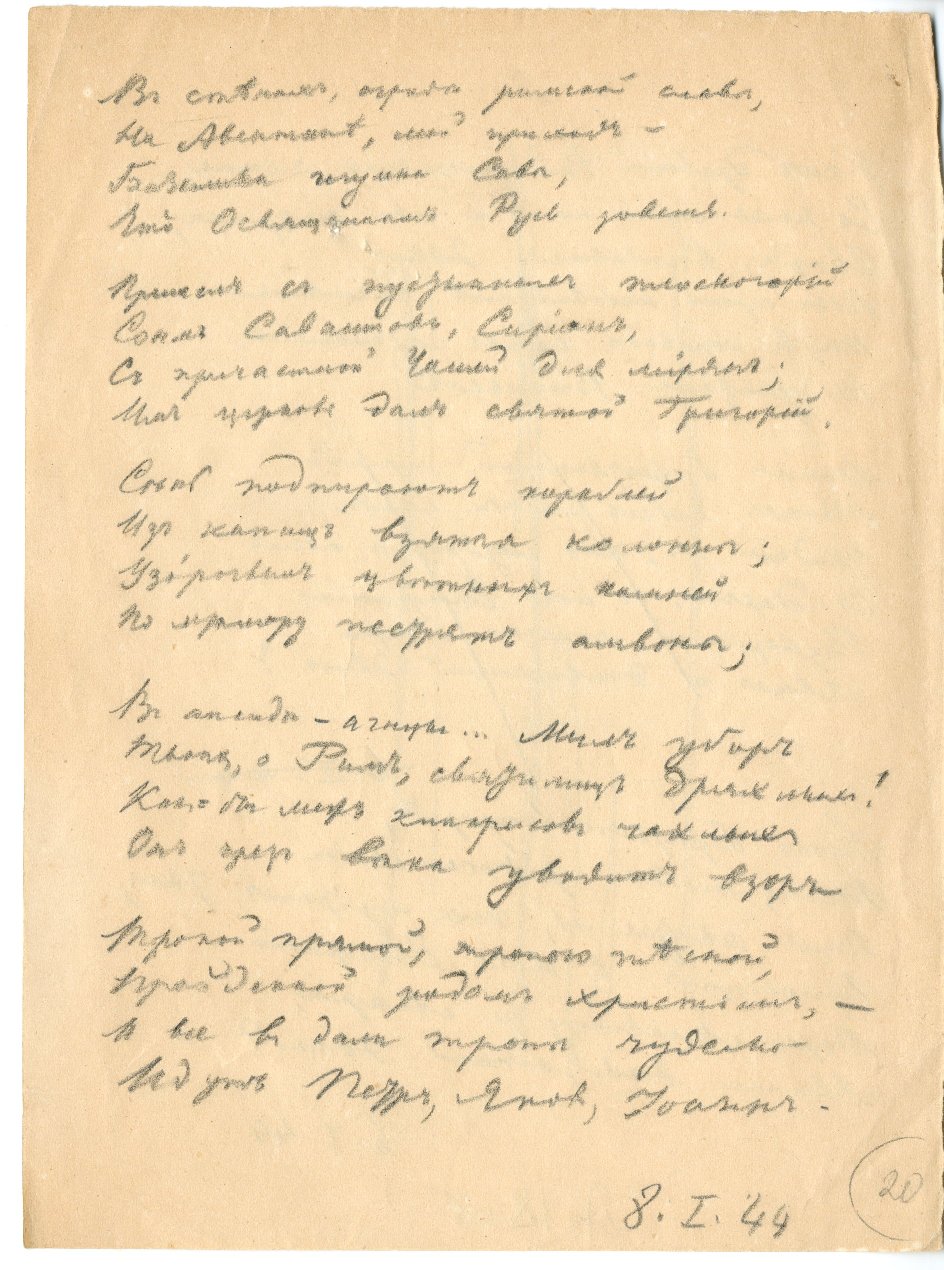 Въ стѣнахъ, оградѣ римской славы,
На Авентинѣ, мой приходъ –
Базилика игумна Савы,
Что Освященнымъ Русь зоветъ.
Пришелъ съ пустынныхъ плоскогорій
Сонмъ Саваитовъ, Сиріянъ,
Съ причастной Чашей для мірянъ;
Имъ церковь далъ святой Григорій.
Сводъ подпираютъ кораблей
Изъ капищъ взятыя колонны;
Узо́рочьемъ цвѣтныхъ камней
По мрамору пестрятъ амвоны;
Въ апсидѣ – агнцы... Милъ уборъ
Твоихъ, о Римъ, святилищъ дряхлыхъ!
Какъ-бы межъ кипарисовъ чахлыхъ
Онъ чрезъ вѣка уводитъ взоръ
Тропой прямой, тропою тѣсной,
Пройденной родомъ христіанъ, –
И все въ дали тропы чудесной
Идутъ Петръ, Яковъ, Іоаннъ.
8. I. '44
20